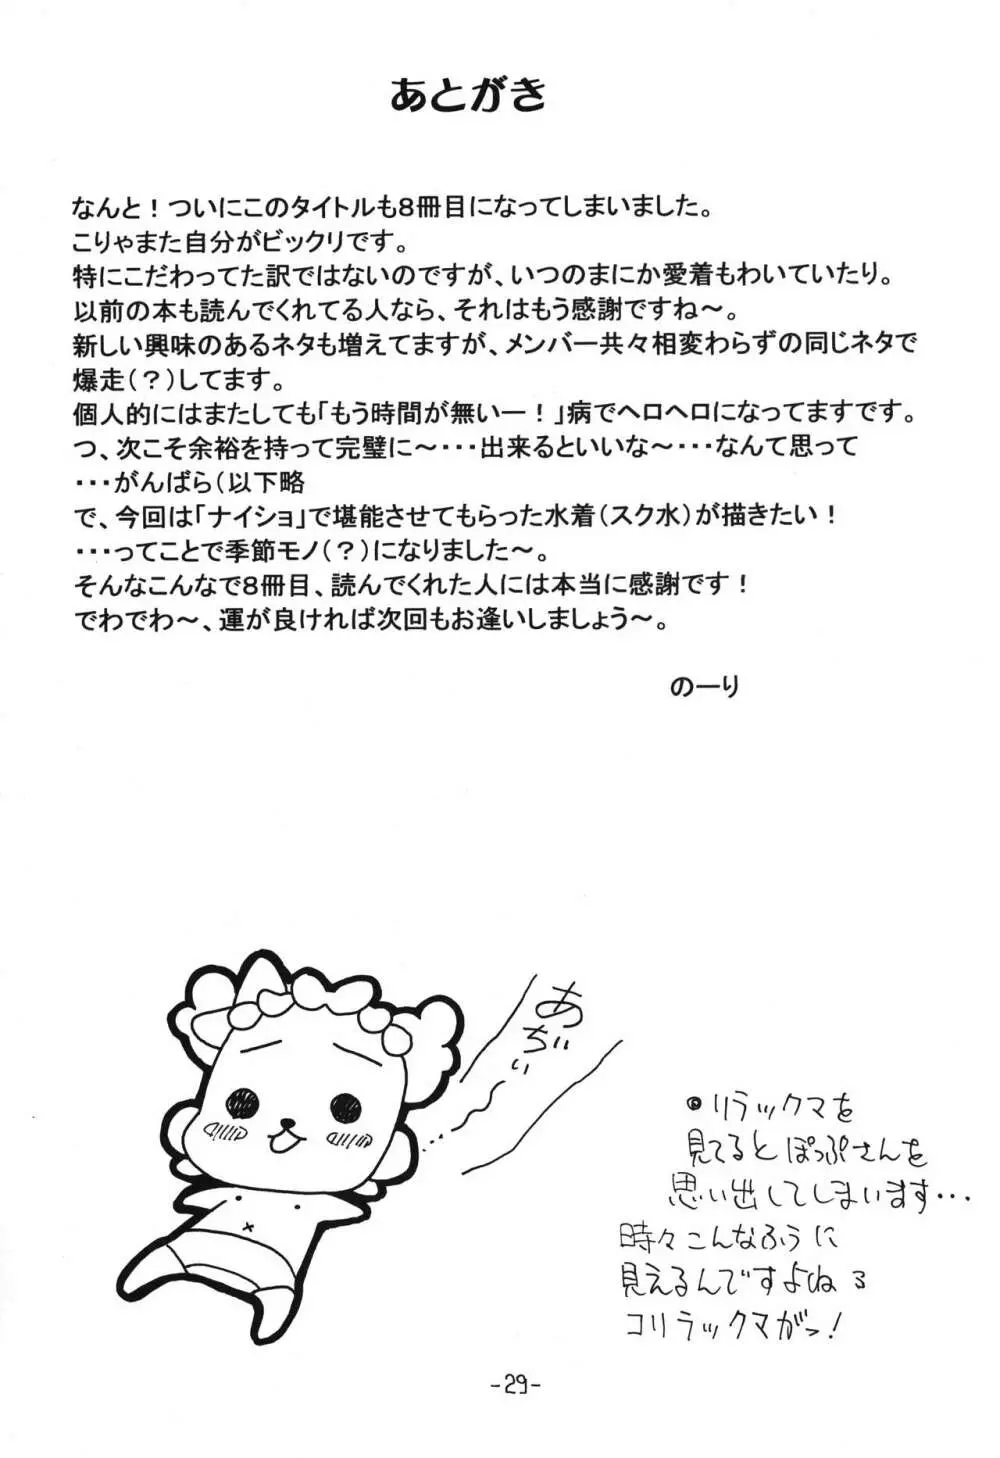 あとがき
なんと！ついにこのタイトルも８冊目になってしまいました。
こりゃまた自分がビックリです。
特にこだわってた訳ではないのですが、いつのまにか愛着もわいていたり。
以前の本も読んでくれてる人なら、それはもう感謝ですね～。
新しい興味のあるネタも増えてますが、メンバー共々相変わらずの同じネタで
爆走（？）してます。
個人的にはまたしても「もう時間が無いー！」病でヘロヘロになってますです。
つ、次こそ余裕を持って完璧に～・・・出来るといいな～・・・なんて思って
・・・がんばら（以下略
で、今回は「ナイショ」で堪能させてもらった水着（スク水）が描きたい！
・・・ってことで季節モノ（？）になりました～。
そんなこんなで８冊目、読んでくれた人には本当に感謝です！
でわでわ～、運が良ければ次回もお逢いしましょう～。
のーり
あぢぃ
リラックマを
見てるとぽっぷさんを
思い出してしまいます・・・
時々こんなふうに
見えるんですよね
コリラックマがっ！
-29-